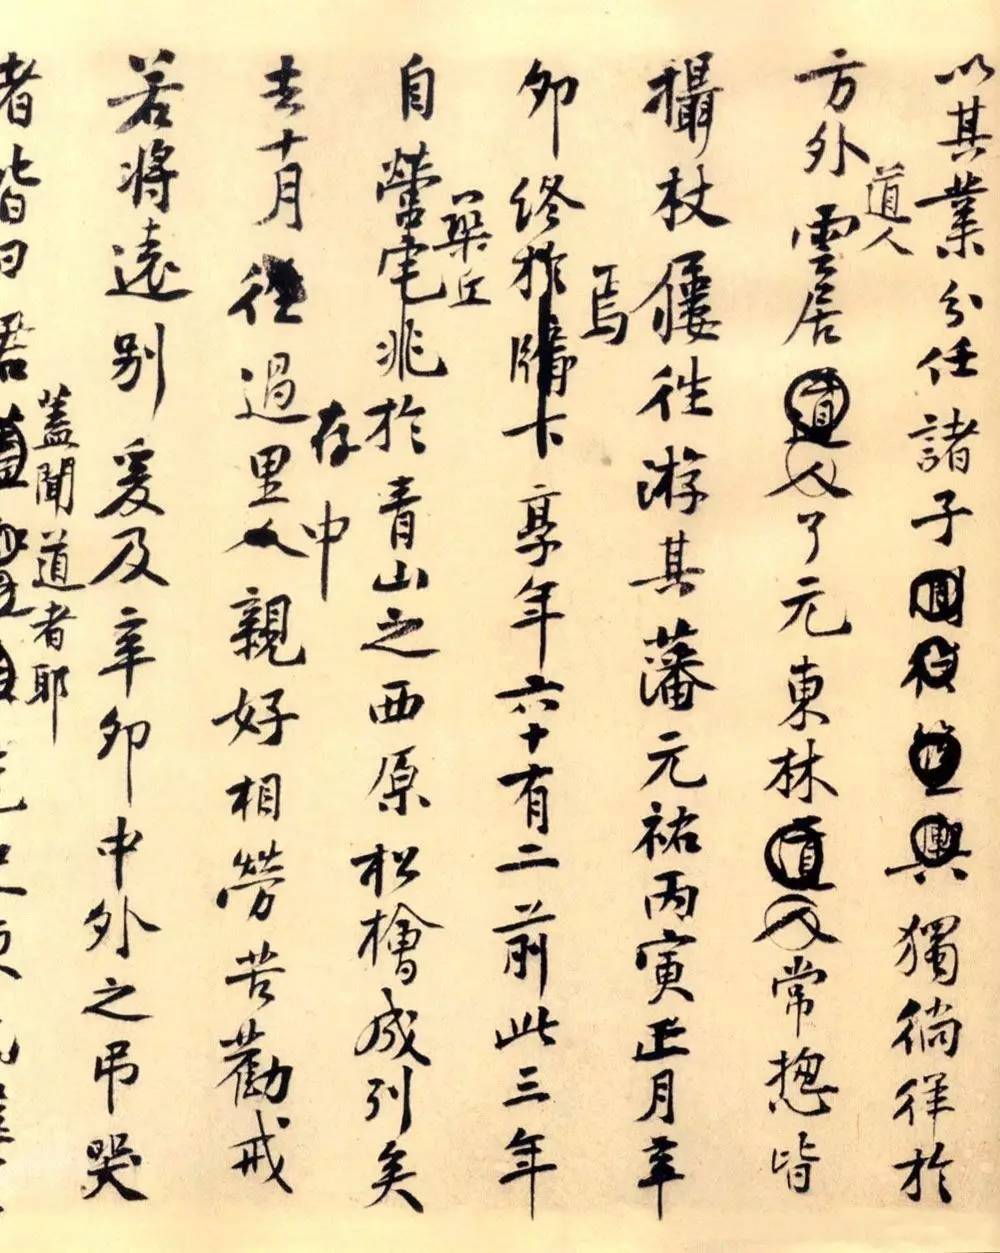 以其業分任諸子獨徜徉於
道人
方外雲居道人了元東林道人常揔皆
攝杖屨往游其藩元祐丙寅正月辛
焉
卯終於牖下享年六十有二前此三年
丘
自營宅兆於青山之西原松檜成列矣
存中
去十月往過里人親好相勞苦勸戒
若將遠別爰及辛卯中外之弔哭
蓋聞道者耶
者皆曰君